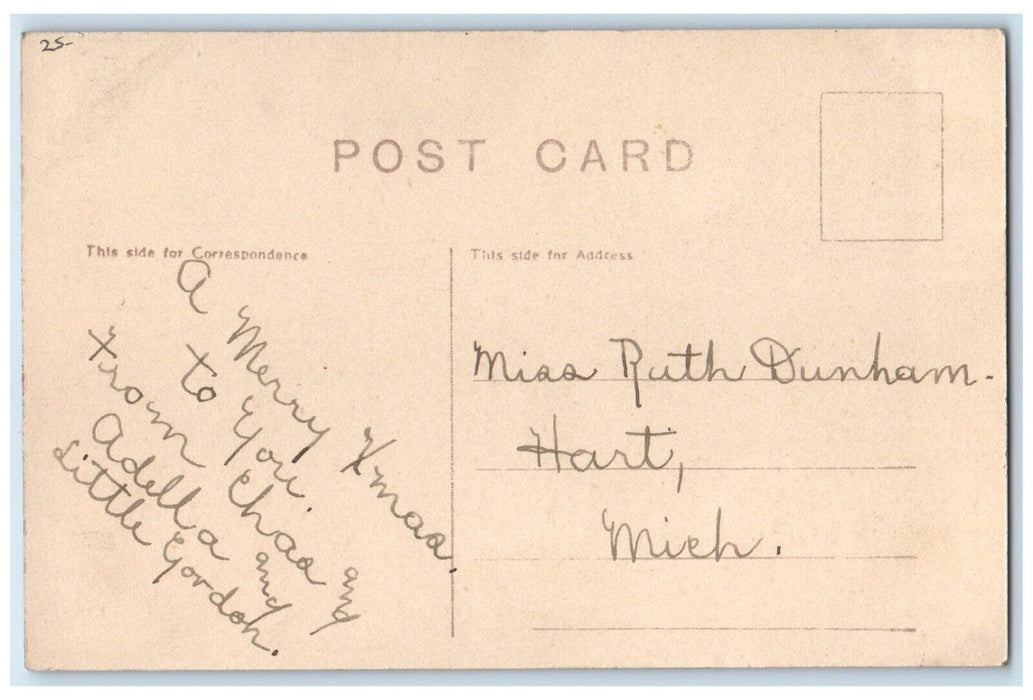 25-
POST CARD
This side for Correspondence
This side for Address
A Merry Xmas.
to You.
From Chas and
Adella and
Little Gordon.
Miss Ruth Dunham.
Hart,
Mich.